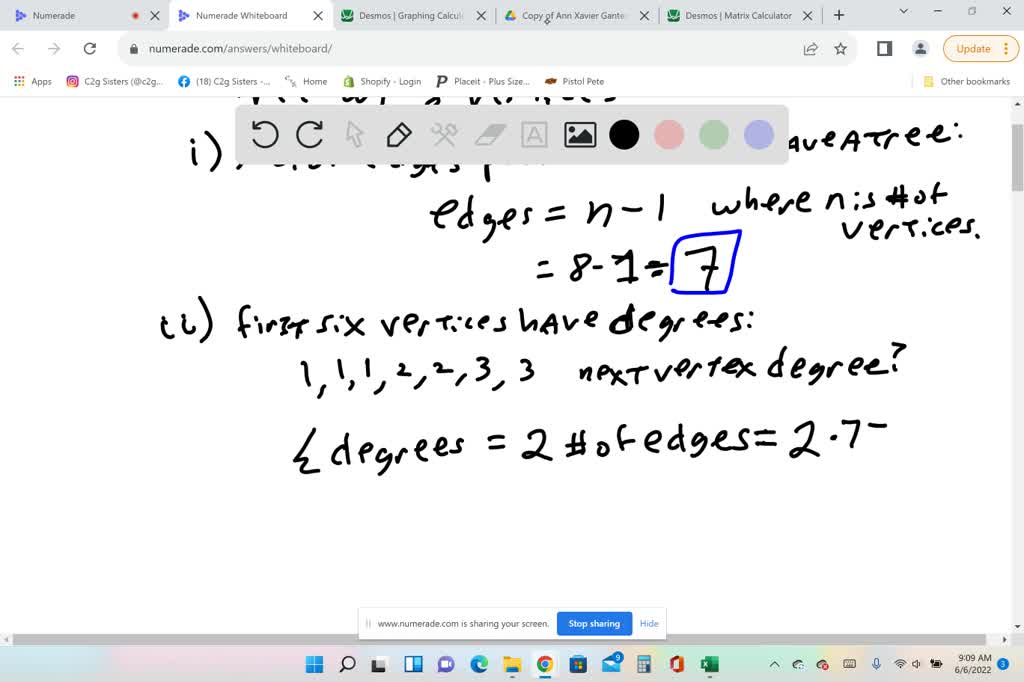 Numerade
Numerade Whiteboard
Desmos | Graphing Calcul
Copy of Ann Xavier Gante
Desmos | Matrix Calculator
numerade.com/answers/whiteboard/
Update
Apps
C2g Sisters (@c2g...
(18) C2g Sisters -...
Home
Shopify - Login
Placeit - Plus Size...
Pistol Pete
Other bookmarks
i) ave A Tree:
edges = n - 1 where n is # of
vertices.
= 8 - 1 = 7
ii) first six vertices have degrees:
1, 1, 1, 2, 2, 3, 3 next vertex degree?
Σ degrees = 2 # of edges = 2 · 7 -
www.numerade.com is sharing your screen.
Stop sharing
Hide
9
9:09 AM
6/6/2022
3